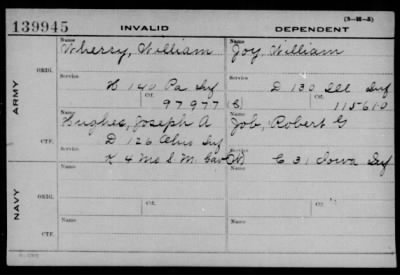 (3—III—5)
139945 INVALID DEPENDENT
ARMY
ORIG.
Name Wherry, William Name Joy, William
Service H 140 Pa Inf Service D 130 Ill Inf
Ctf. 97977 (C) Ctf. 115610
CTF.
Name Hughes, Joseph A Name Job, Robert G
Service D 126 Ohio Inf Service
K 4 Mo S. M. Cav C 31 Iowa Inf
NAVY
ORIG.
Name Name
Service Service
Ctf. Ctf.
CTF.
Name Name